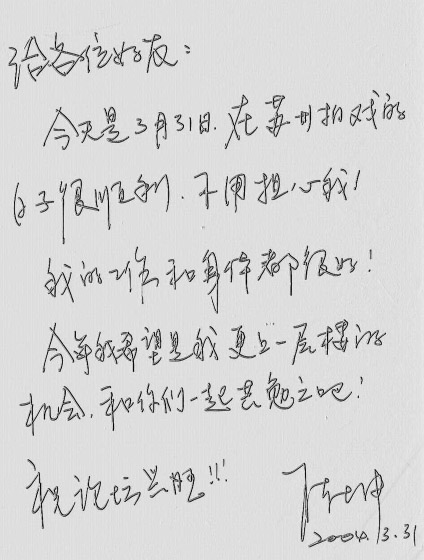 给各位好友：
今天是3月31日.在苏州拍戏的
日子很顺利.不用担心我!
我的工作和身体都很好!
今年我希望是我更上一层楼的
机会.和你们一起共勉之吧!
祝论坛兴旺!!!
陈坤
2004.3.31